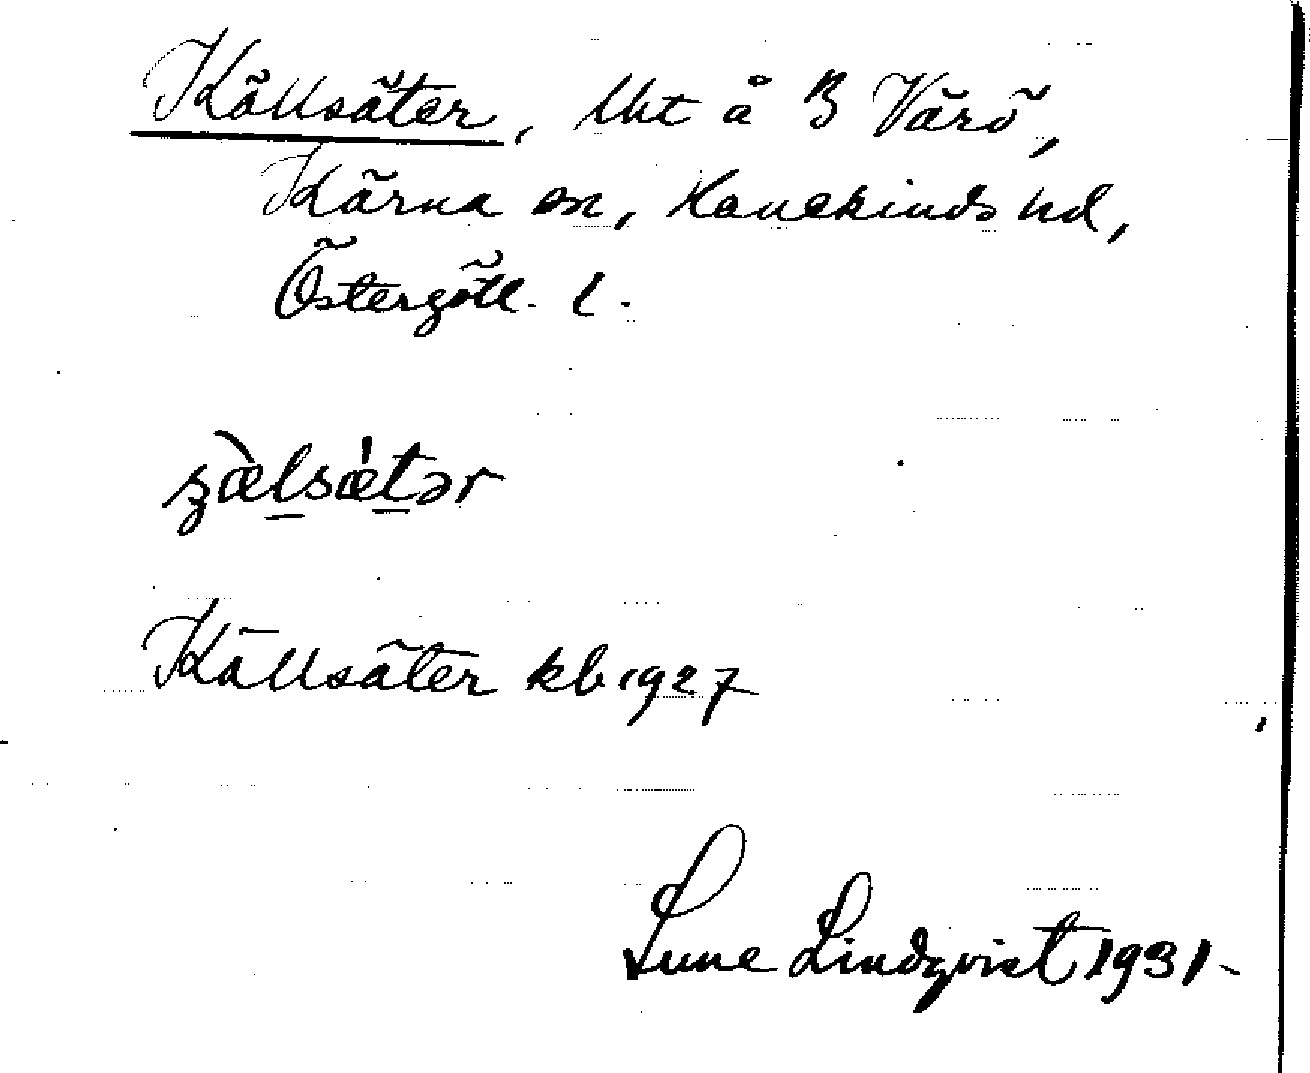 Källsäter, lht å B Värö,
Kärna sn, Hanekinds hd,
Östergötl. l.
Källsäter kb 1927
Sune Lindqvist 1931